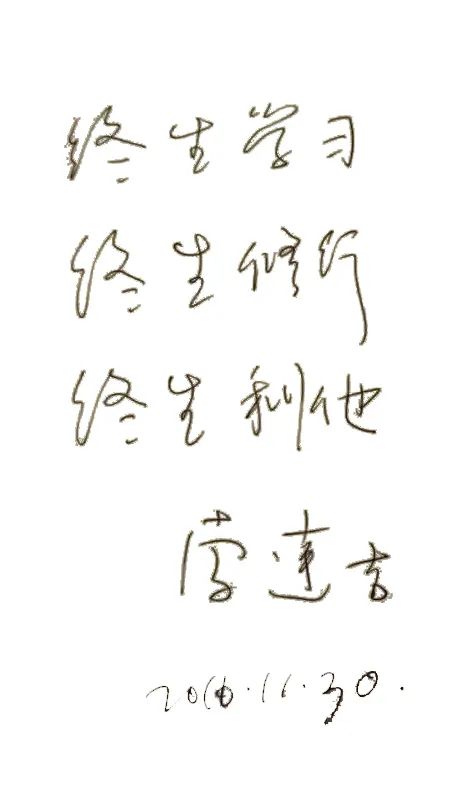 终生学习
终生修行
终生利他
2016.11.30.